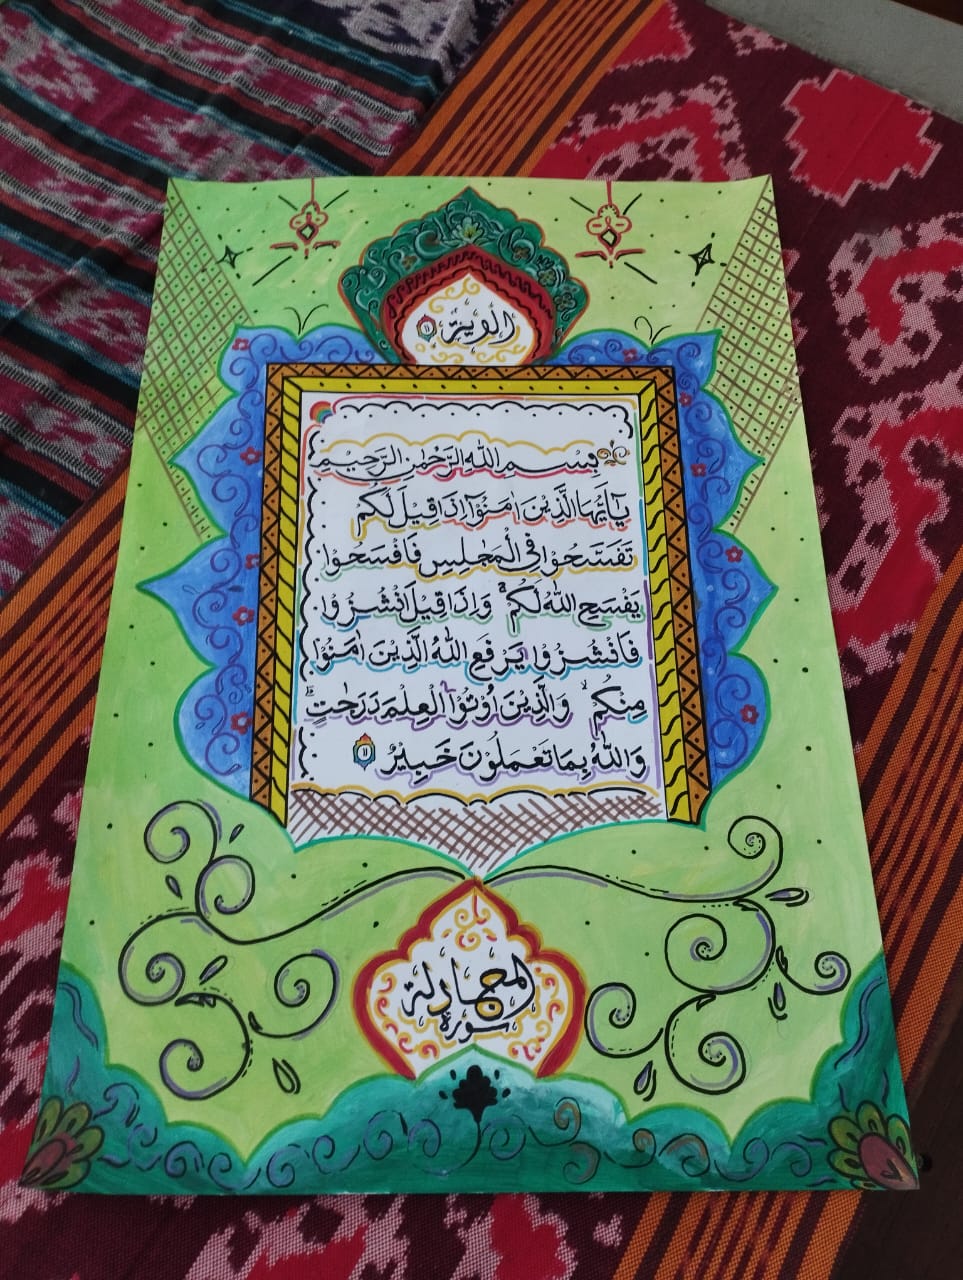 الاية ١١
بِسْمِ اللهِ الرَّحْمٰنِ الرَّحِيْمِ
يٰٓاَيُّهَا الَّذِيْنَ اٰمَنُوْٓا اِذَا قِيْلَ لَكُمْ
تَفَسَّحُوْا فِى الْمَجٰلِسِ فَافْسَحُوْا
يَفْسَحِ اللهُ لَكُمْۚ وَاِذَا قِيْلَ انْشُزُوْا
فَانْشُزُوْا يَرْفَعِ اللهُ الَّذِيْنَ اٰمَنُوْا
مِنْكُمْۙ وَالَّذِيْنَ اُوْتُوا الْعِلْمَ دَرَجٰتٍۗ
وَاللهُ بِمَا تَعْمَلُوْنَ خَبِيْرٌ ١١
المجادلة
سورة